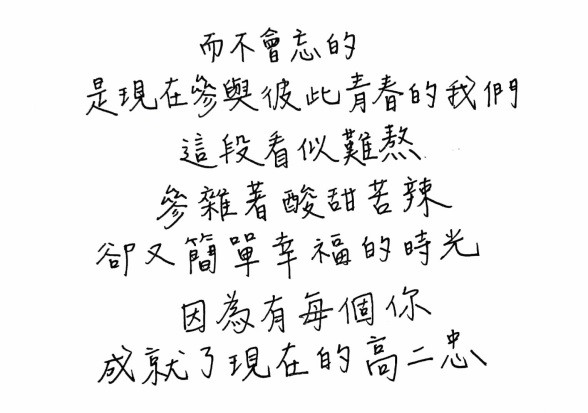 而不會忘的
是現在參與彼此青春的我們
這段看似難熬
參雜著酸甜苦辣
卻又簡單幸福的時光
因為有每個你
成就了現在的高二忠